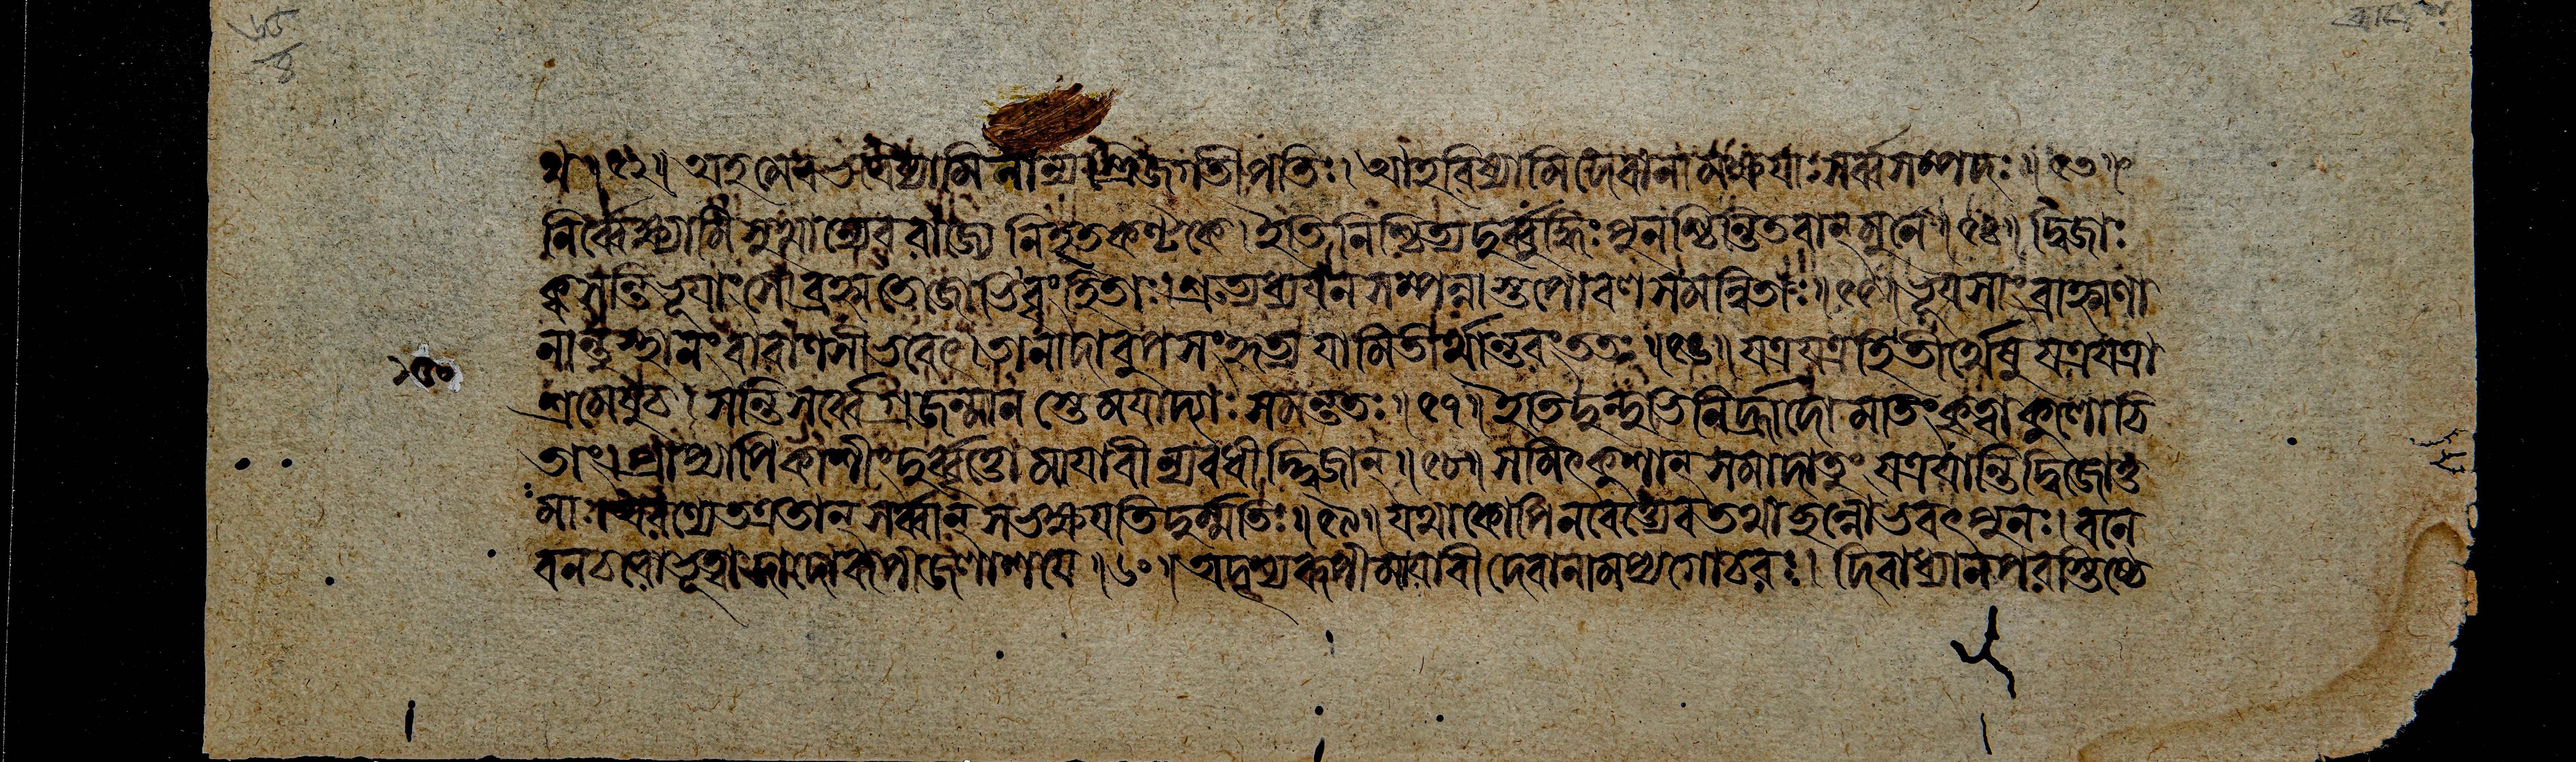 থ ॥ ৫২ ॥ অহমেব ভবিষ্যামি মান্যস্ত্রিজগতীপতিঃ । আহরিষ্যামি দেবানামক্ষয়াঃ সর্ব্বসম্পদঃ ॥ ৫৩ ॥
নির্ব্বেক্ষ্যামি সুখান্যেব রাজ্যে নিহতকণ্টকে । ইতি নিশ্চিত্য দুর্ব্বুদ্ধিঃ পুনশ্চিন্তিতবান্ মুনে ॥ ৫৪ ॥ দ্বিজাঃ
ক্ব সন্তি ভূয়াংসো ব্রহ্মতেজোভিবৃংহিতাঃ । শ্রুত্যধ্যয়নসম্পন্নাস্তপোবলসমন্বিতাঃ ॥ ৫৫ ॥ ভূয়সাং ব্রাহ্মণা
নান্তু স্থানং বারাণসী ভবেৎ । তানাদাবুপসংহৃত্য যামি তীর্থান্তরং ততঃ ॥ ৫৬ ॥ যত্র যত্র হি তীর্থেষু যত্র যত্রা
শ্রমেষু চ । সন্তি সর্ব্বেগ্রজন্মানস্তে ময়াদ্যাঃ সমন্ততঃ ॥ ৫৭ ॥ ইতি দুন্দুভিনির্হ্রাদো মতিং কৃত্বা কুলোচি
তাং । প্রাপ্যাপি কাশীং দুর্ব্বৃত্তো মায়াবী ন্যবধীদ্দ্বিজান্ ॥ ৫৮ ॥ সমিৎকুশান্ সমাদাতুং যত্র যান্তি দ্বিজোত্ত
মাঃ । অরণ্যে তত্র তান্ সর্ব্বান্ স ভক্ষয়তি দুর্ম্মতিঃ ॥ ৫৯ ॥ যথা কোপি ন বেত্ত্যেব তথাচ্ছন্নোভবৎ পুনঃ । বনে
বনচরো ভূত্বা যাদোরূপী জলাশয়ে ॥ ৬০ ॥ অদৃশ্যরূপী মায়াবী দেবানামপ্যগোচরঃ । দিবা ধ্যানপরস্তিষ্ঠে